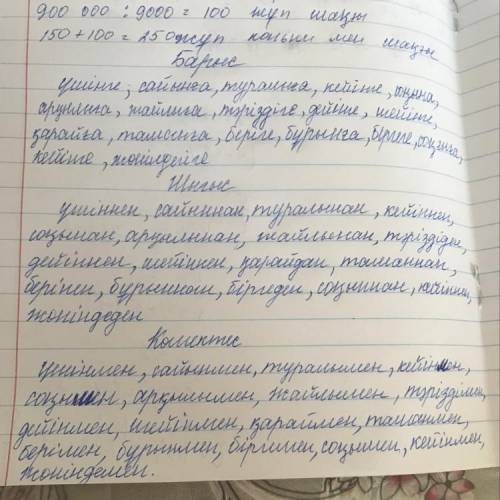 900 000 : 9000 = 100 жұп шаңғы
150 + 100 = 250 жұп коньки мен шаңғы
Барыс
үшінге, сайынға, туралыға, кейінге, соңына,
арқылыға, жайлыға, тәріздіге, дейінге, шейінге,
қарайға, таманға, беріге, бұрынға, біргеге, соңынға,
кейінге, жөніндегіге
Шығыс
үшіннен, сайыннан, туралынан, кейіннен,
соңынан, арқылынан, жайлынан, тәрізділен,
дейіннен, шейіннен, қарайдан, таманнан,
берінен, бұрыннан, біргеден, соңыннан, кейіннен,
жөніндеден
Көмектес
үшінмен, сайынмен, туралымен, кейінмен,
соңымен, арқылымен, жайлымен, тәрізділмен,
дейінмен, шейінмен, қараймен, таманмен,
берімен, бұрынмен, біргемен, соңымен, кейінмен,
жөніндемен.